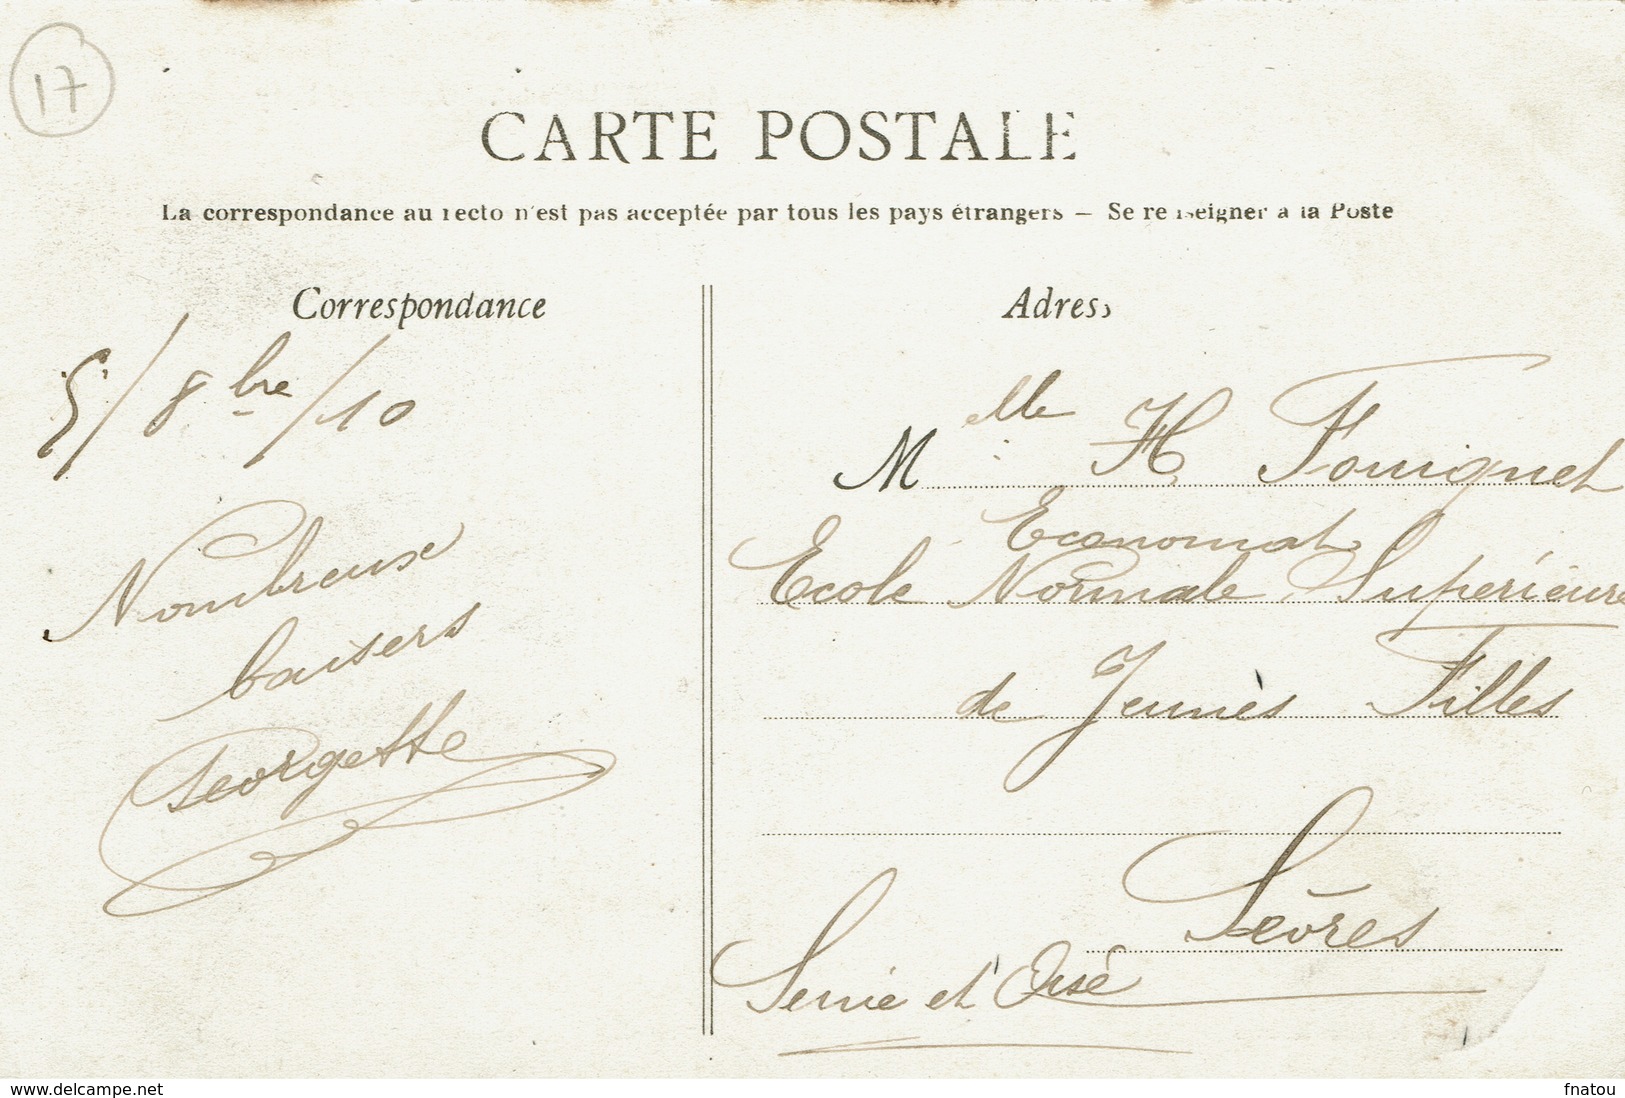 17
CARTE POSTALE
La correspondance au recto n'est pas acceptée par tous les pays étrangers — Se renseigner à la Poste
Correspondance
5/8bre/10
Nombreux
baisers
Georgette
Adresse
Melle H Fouignet
Economat
Ecole Normale Supérieure
de Jeunes Filles
Sèvres
Seine et Oise
www.delcampe.net
fnatou